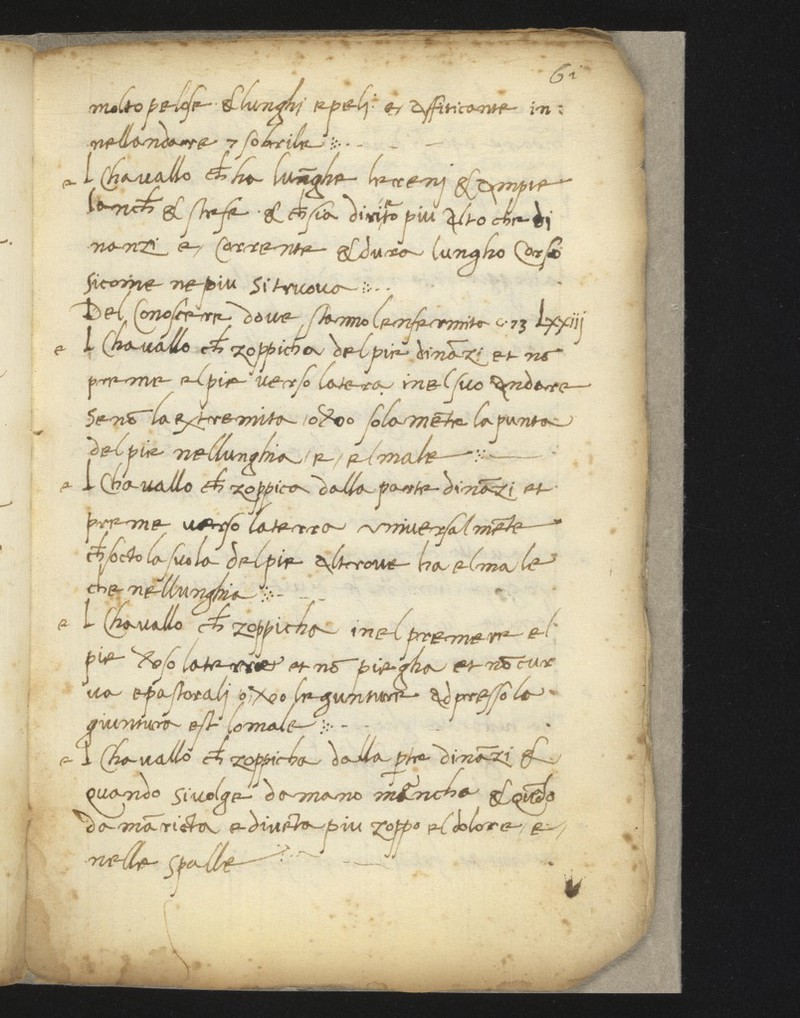 61
molto pelose & lunghi e peli e, affiticante in:
nellandare 7 sobrile
e l Chavallo ch̄ ha lun̄ghe lereni & ampie
lanch̄ & strese & ch̄ sia diricto piu alto che di
nanzi e, Corrente & dura lungho Corso
sicome nepiu si truova
Del Conoscere dove, stanno lenfermita c. 73 Lxxiij
e l Chavallo ch̄ zoppicha del pie dināzi et nō
preme el pie verso latera inel suo andare
se nō la extremita, o solamēte la punta
del pie nellunghia, e, el male
e l Chavallo ch̄ zoppica dalla parte dināzi et
preme verso laterra universalmēte
ch̄ socto la suola del pie altrove ha el male
che nellunghia
e l Chavallo ch̄ zoppicha inel premere el
pie laterra et nō piegha et nō cur
va epastorali le gunture adpresso la
giuntura est lo male
e l Chavallo ch̄ zoppicha dalla pte dināzi &
quando si volge da mano mancha & qn̄do
da mā ricta e divēta piu zoppo el dolore, e,
nelle spalle